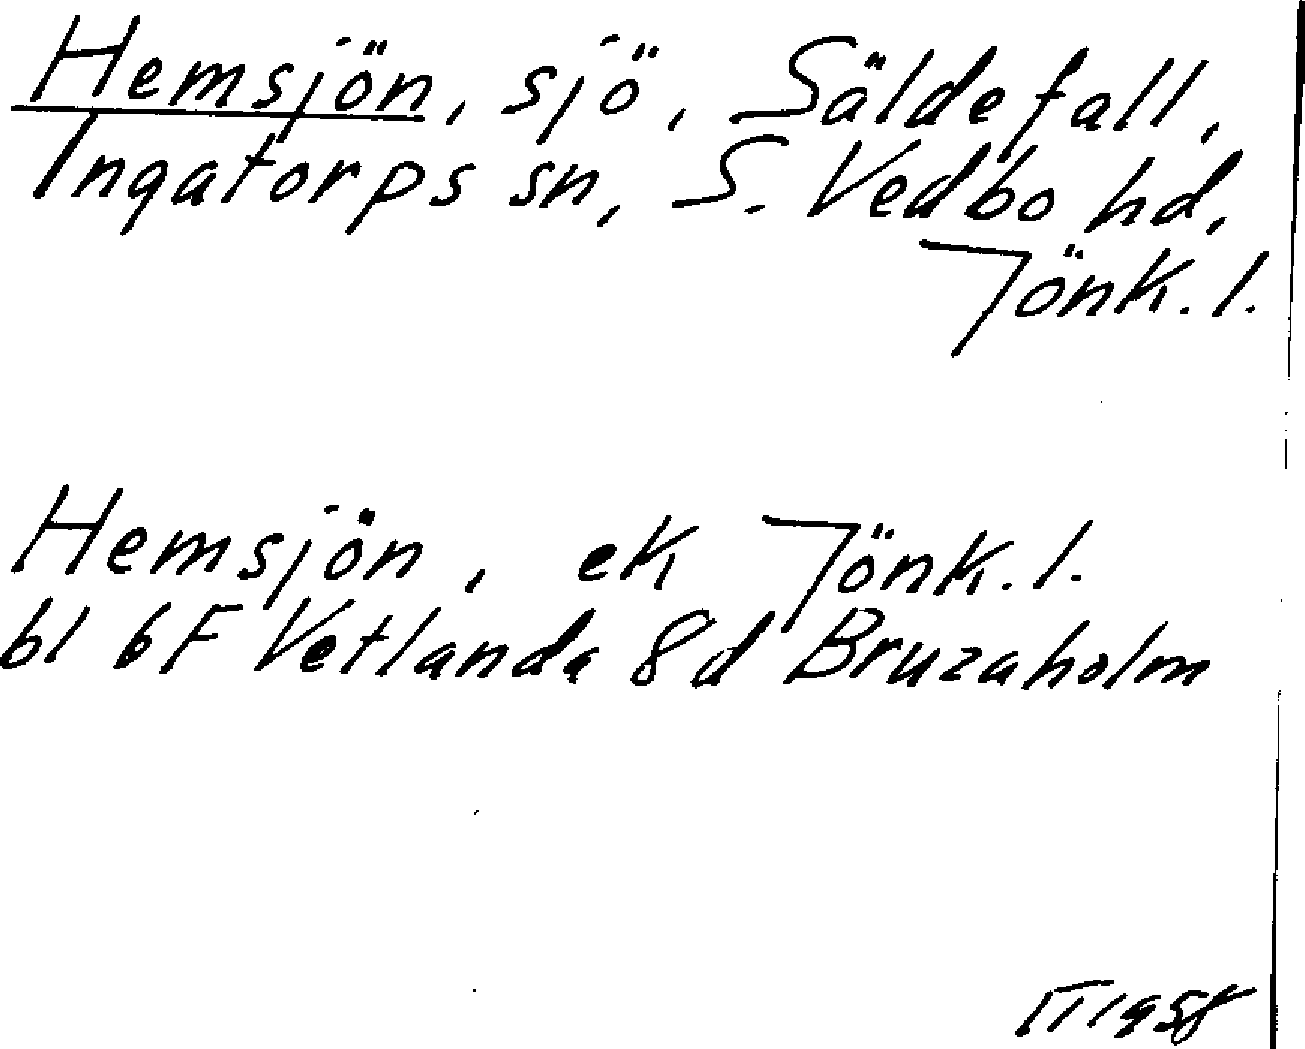 Hemsjön, sjö, Säldefall,
Ingatorps sn, S. Vedbo hd,
Jönk. l.
Hemsjön, ek Jönk. l.
bl 6F Vetlanda 8d Bruzaholm